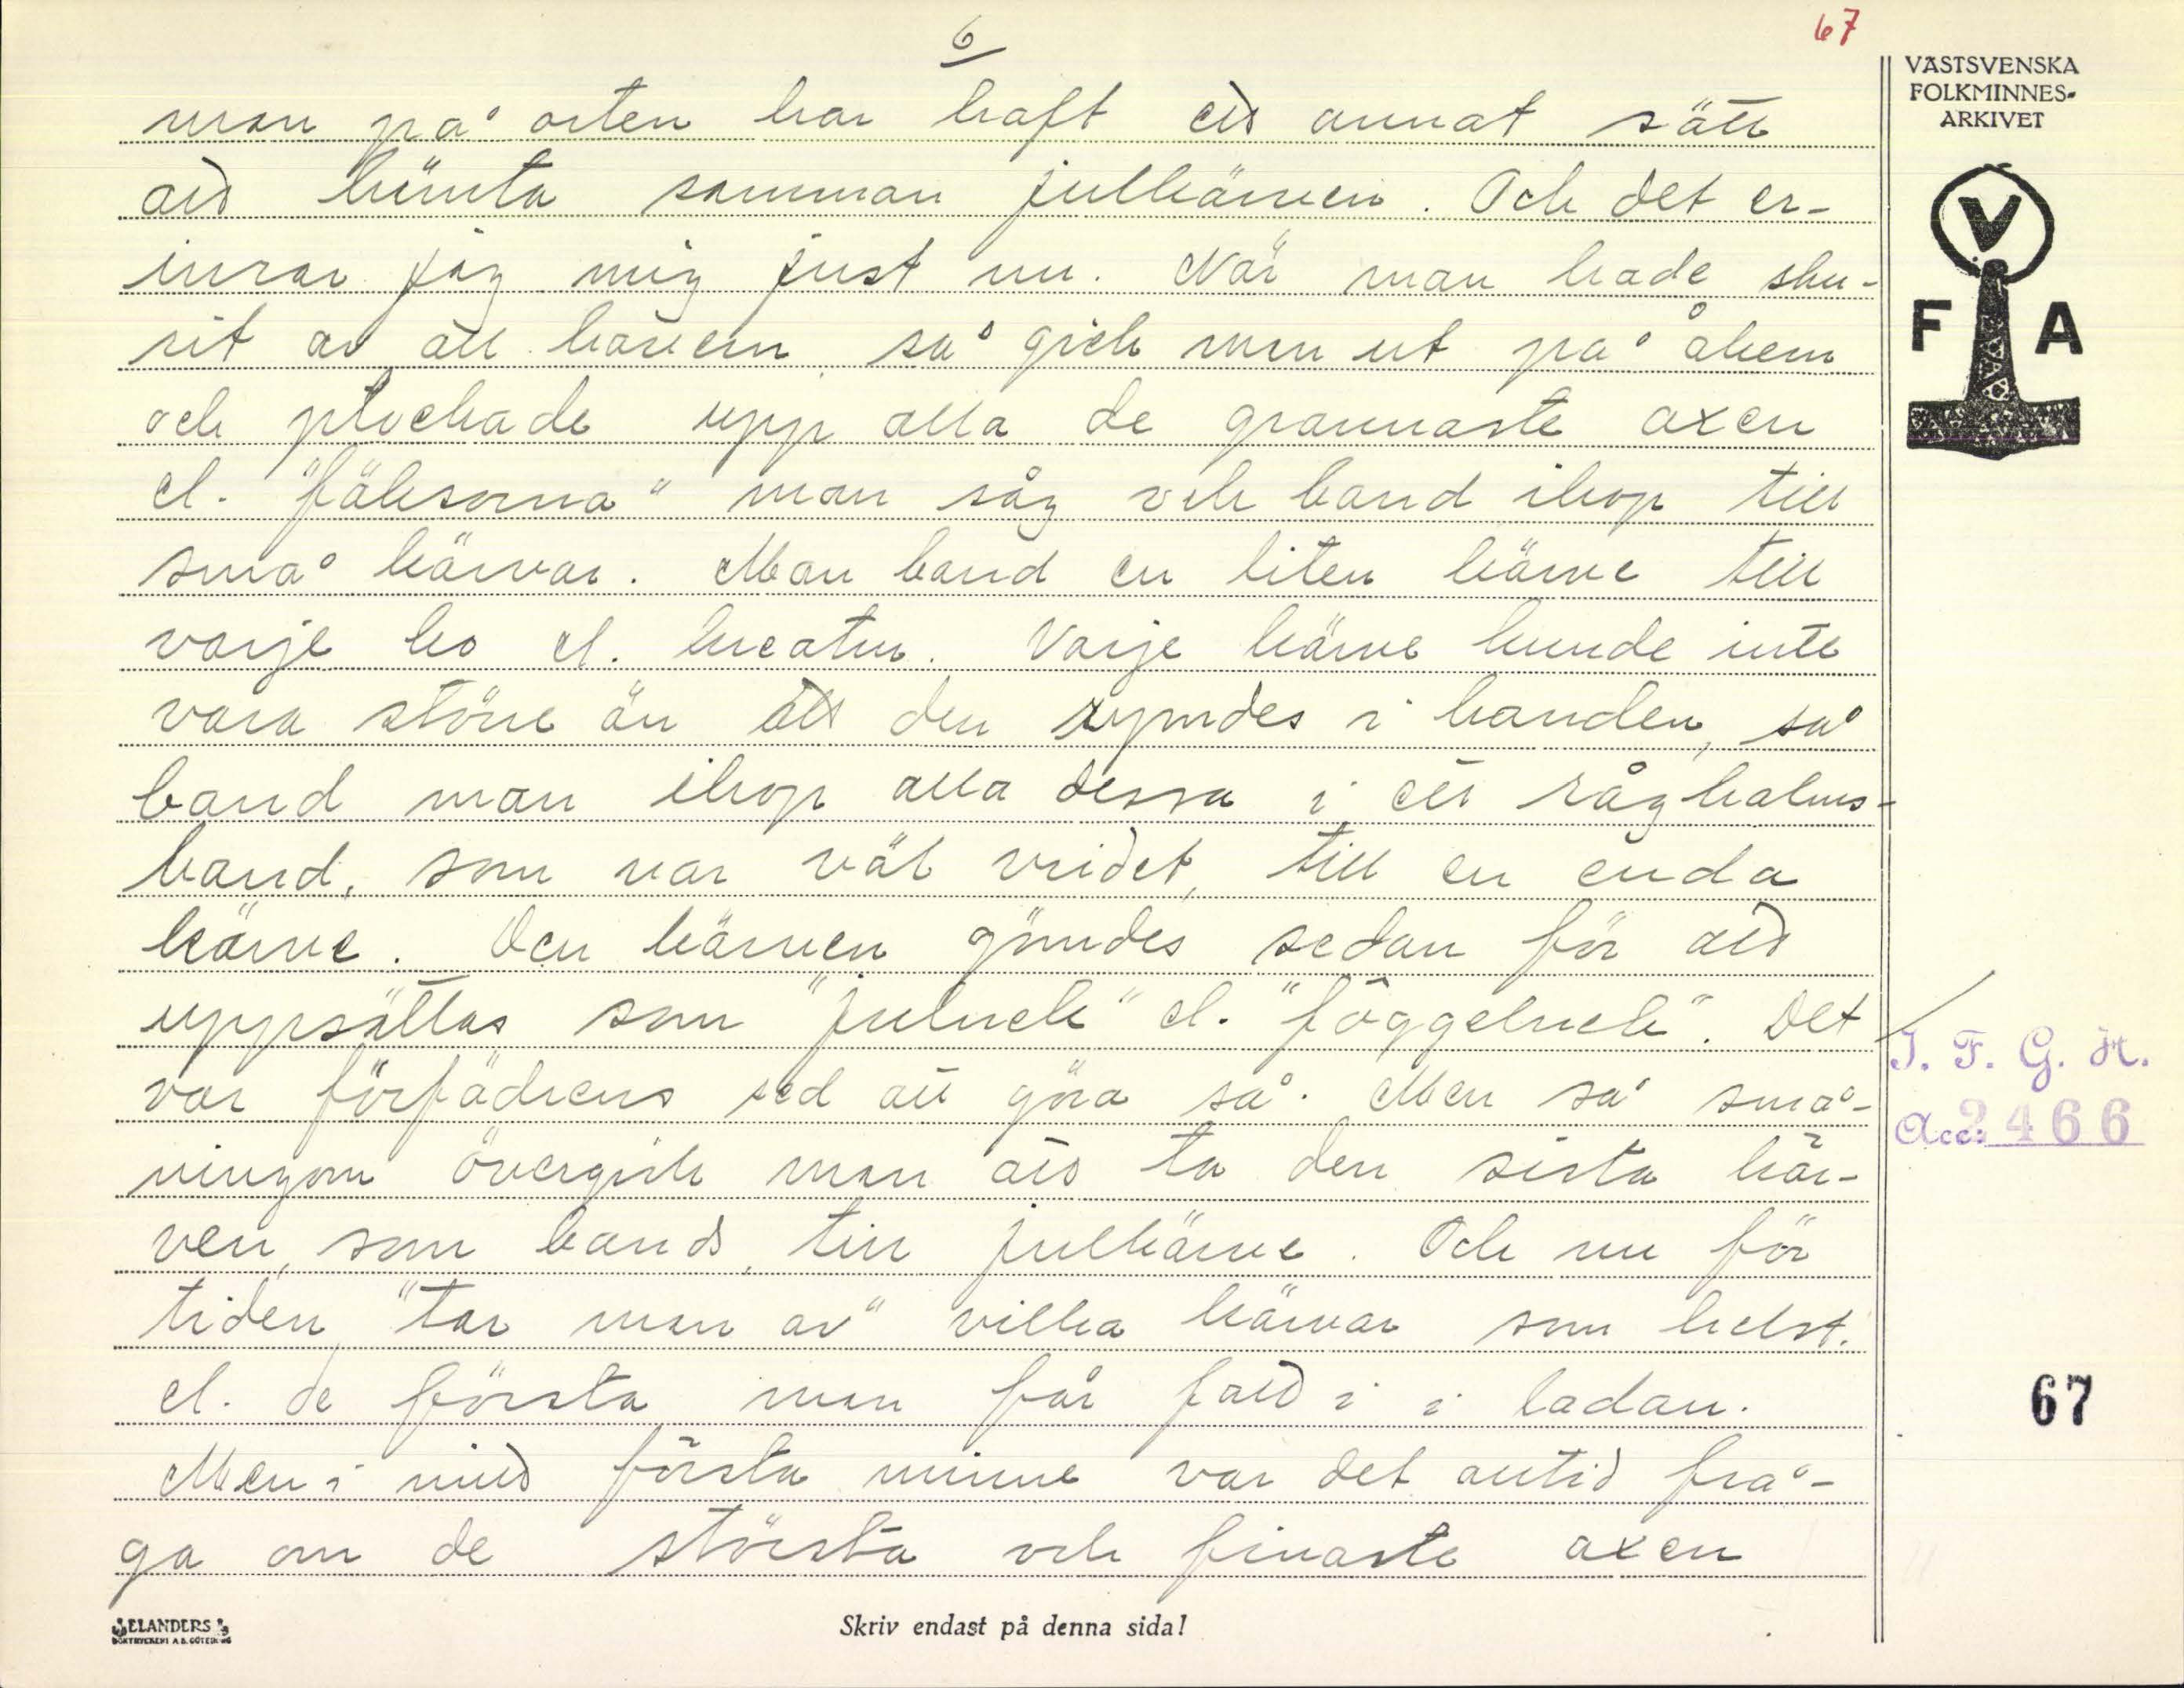 6
67
VÄSTSVENSKA
FOLKMINNES-
ARKIVET
V
F A
man på orten har haft ett annat sätt
att hämta samman julkärven. Och det er-
inrar jag mig just nu. När man hade sku-
rit av all havern så gick man ut på åkern
och plockade upp alla de grannaste axen
el. "fäksorna" man såg och band ihop till
små kärvar. Man band en liten kärve till
varje ko el. kreatur. Varje kärve kunde inte
vara större än att den rymdes i handen, så
band man ihop alla dessa i ett råghalms-
band, som var väl vridet, till en enda
kärve. Den kärven gömdes sedan för att
uppsättas som "julnek" el. "föggelnek". Det
var förfädrens sed att göra så. Men så små-
ningom övergick man att ta den sista kär-
ven, som bands, till julkärve. Och nu för
tiden "tar man av" vilka kärvar som helst.
el. de första man får fatt i i ladan.
Men i mitt första minne var det alltid frå-
ga om de största och finaste axen
I. F. G. H.
Acc: 2466
67
ELANDERS
BOKTRYCKERI A.B. GÖTEBORG
Skriv endast på denna sida!